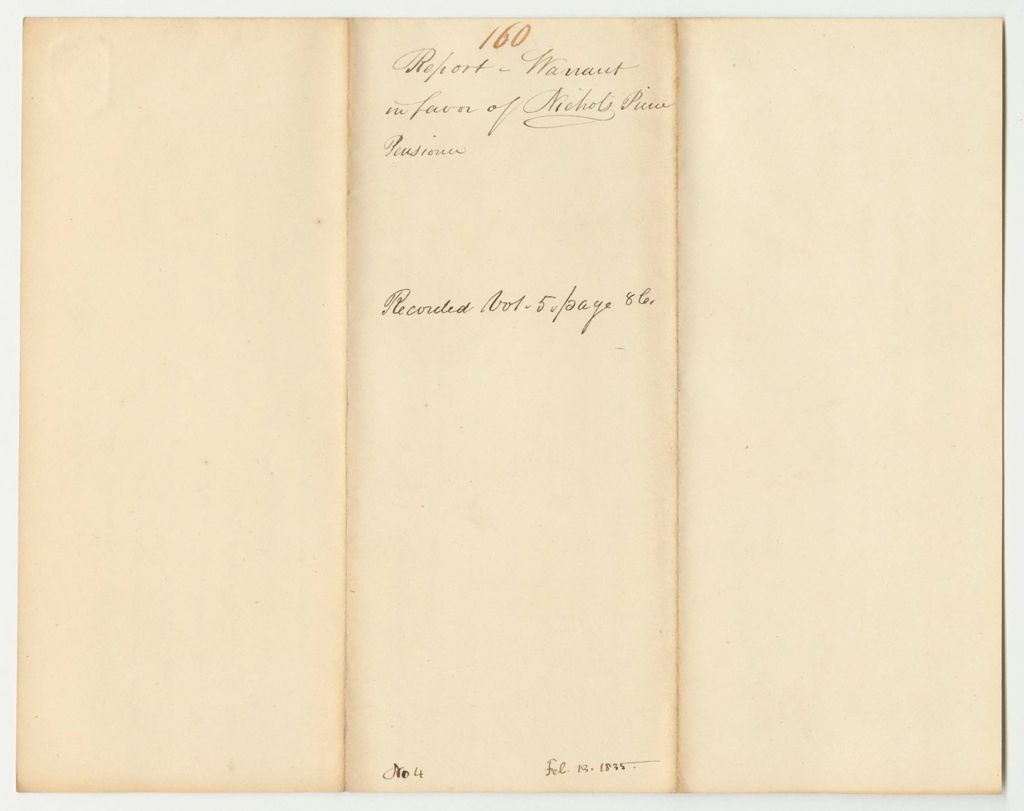 160
Report - Warrant
in favor of Nichols
Pensioner
Recorded Vol. 5. page 86.
No 4
Feb. 13. 1835.